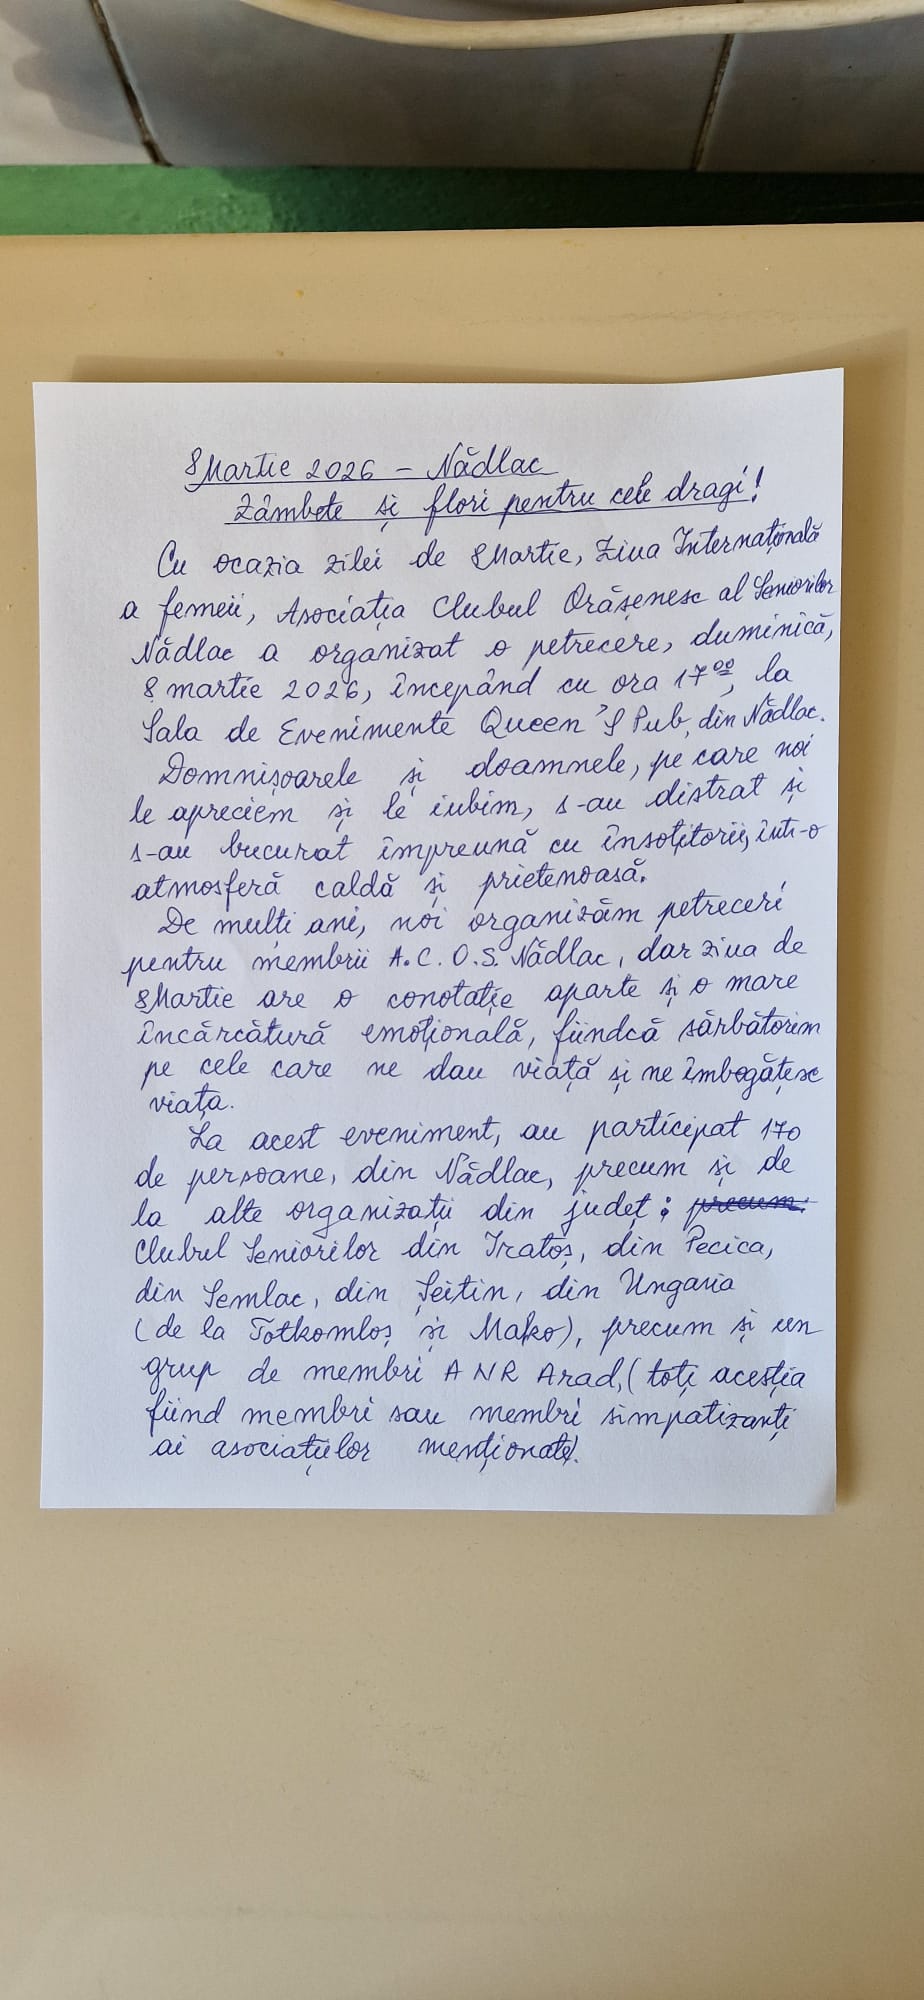 8 Martie 2026 – Nădlac
Zâmbete și flori pentru cele dragi!
Cu ocazia zilei de 8 Martie, Ziua Internațională
a femeii, Asociația Clubul Orășenesc al Seniorilor
Nădlac a organizat o petrecere, duminică,
8 martie 2026, începând cu ora 17⁰⁰, la
Sala de Evenimente Queen's Pub, din Nădlac.
Domnișoarele și doamnele, pe care noi
le apreciem și le iubim, s-au distrat și
s-au bucurat împreună cu însoțitorii, într-o
atmosferă caldă și prietenoasă.
De mulți ani, noi organizăm petreceri
pentru membrii A.C.O.S. Nădlac, dar ziua de
8 Martie are o conotație aparte și o mare
încărcătură emoțională, fiindcă sărbătorim
pe cele care ne dau viață și ne îmbogățesc
viața.
La acest eveniment, au participat 170
de persoane, din Nădlac, precum și de
la alte organizații din județ: precum:
Clubul Seniorilor din Iratoș, din Pecica,
din Semlac, din Șeitin, din Ungaria
(de la Totkomloș și Mako), precum și un
grup de membri ANR Arad, (toți aceștia
fiind membri sau membri simpatizanți
ai asociațiilor menționate).